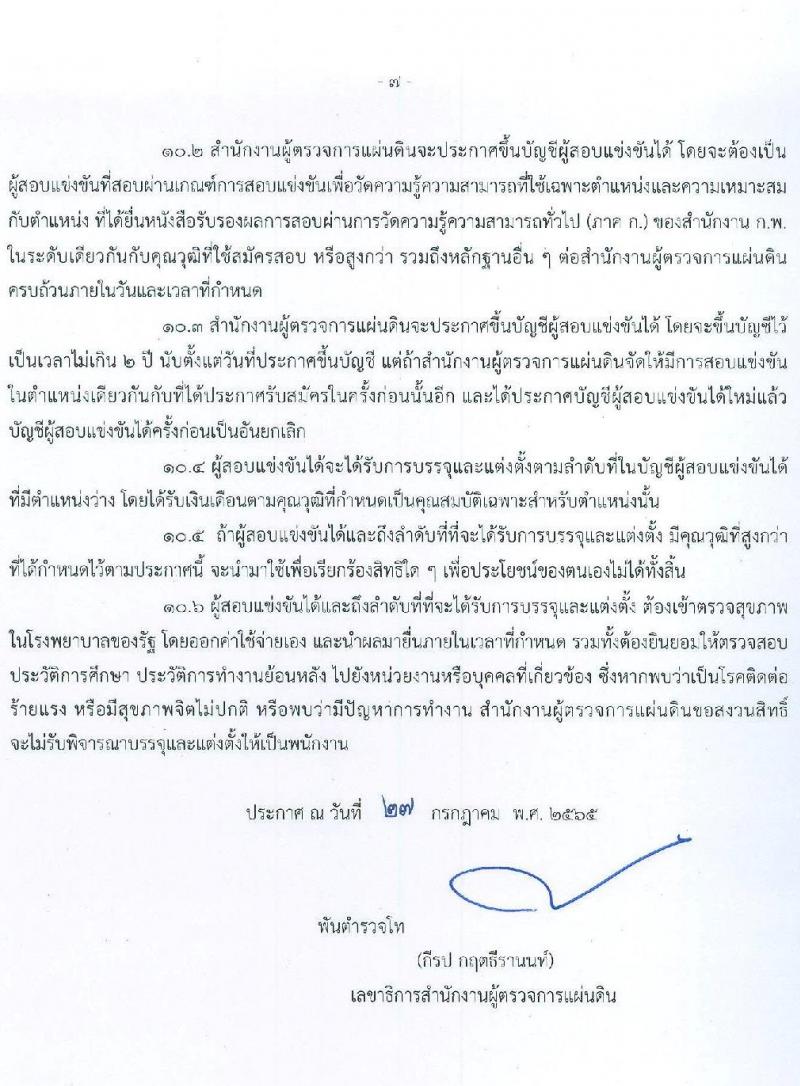 - ๗ -
๑๐.๒ สำนักงานผู้ตรวจการแผ่นดินจะประกาศขึ้นบัญชีผู้สอบแข่งขันได้ โดยจะต้องเป็น
ผู้สอบแข่งขันที่สอบผ่านเกณฑ์การสอบแข่งขันเพื่อวัดความรู้ความสามารถที่ใช้เฉพาะตำแหน่งและความเหมาะสม
กับตำแหน่ง ที่ได้ยื่นหนังสือรับรองผลการสอบผ่านการวัดความรู้ความสามารถทั่วไป (ภาค ก.) ของสำนักงาน ก.พ.
ในระดับเดียวกันกับคุณวุฒิที่ใช้สมัครสอบ หรือสูงกว่า รวมถึงหลักฐานอื่น ๆ ต่อสำนักงานผู้ตรวจการแผ่นดิน
ครบถ้วนภายในวันและเวลาที่กำหนด
๑๐.๓ สำนักงานผู้ตรวจการแผ่นดินจะประกาศขึ้นบัญชีผู้สอบแข่งขันได้ โดยจะขึ้นบัญชีไว้
เป็นเวลาไม่เกิน ๒ ปี นับตั้งแต่วันที่ประกาศขึ้นบัญชี แต่ถ้าสำนักงานผู้ตรวจการแผ่นดินจัดให้มีการสอบแข่งขัน
ในตำแหน่งเดียวกันกับที่ได้ประกาศรับสมัครในครั้งก่อนนั้นอีก และได้ประกาศบัญชีผู้สอบแข่งขันได้ใหม่แล้ว
บัญชีผู้สอบแข่งขันได้ครั้งก่อนเป็นอันยกเลิก
๑๐.๔ ผู้สอบแข่งขันได้จะได้รับการบรรจุและแต่งตั้งตามลำดับที่ในบัญชีผู้สอบแข่งขันได้
ที่มีตำแหน่งว่าง โดยได้รับเงินเดือนตามคุณวุฒิที่กำหนดเป็นคุณสมบัติเฉพาะสำหรับตำแหน่งนั้น
๑๐.๕ ถ้าผู้สอบแข่งขันได้และถึงลำดับที่ที่จะได้รับการบรรจุและแต่งตั้ง มีคุณวุฒิที่สูงกว่า
ที่ได้กำหนดไว้ตามประกาศนี้ จะนำมาใช้เพื่อเรียกร้องสิทธิใด ๆ เพื่อประโยชน์ของตนเองไม่ได้ทั้งสิ้น
๑๐.๖ ผู้สอบแข่งขันได้และถึงลำดับที่ที่จะได้รับการบรรจุและแต่งตั้ง ต้องเข้าตรวจสุขภาพ
ในโรงพยาบาลของรัฐ โดยออกค่าใช้จ่ายเอง และนำผลมายื่นภายในเวลาที่กำหนด รวมทั้งต้องยินยอมให้ตรวจสอบ
ประวัติการศึกษา ประวัติการทำงานย้อนหลัง ไปยังหน่วยงานหรือบุคคลที่เกี่ยวข้อง ซึ่งหากพบว่าเป็นโรคติดต่อ
ร้ายแรง หรือมีสุขภาพจิตไม่ปกติ หรือพบว่ามีปัญหาการทำงาน สำนักงานผู้ตรวจการแผ่นดินขอสงวนสิทธิ์
จะไม่รับพิจารณาบรรจุและแต่งตั้งให้เป็นพนักงาน
ประกาศ ณ วันที่ ๒๗ กรกฎาคม พ.ศ. ๒๕๖๕
พันตำรวจโท
(กีรป กฤตธีรานนท์)
เลขาธิการสำนักงานผู้ตรวจการแผ่นดิน